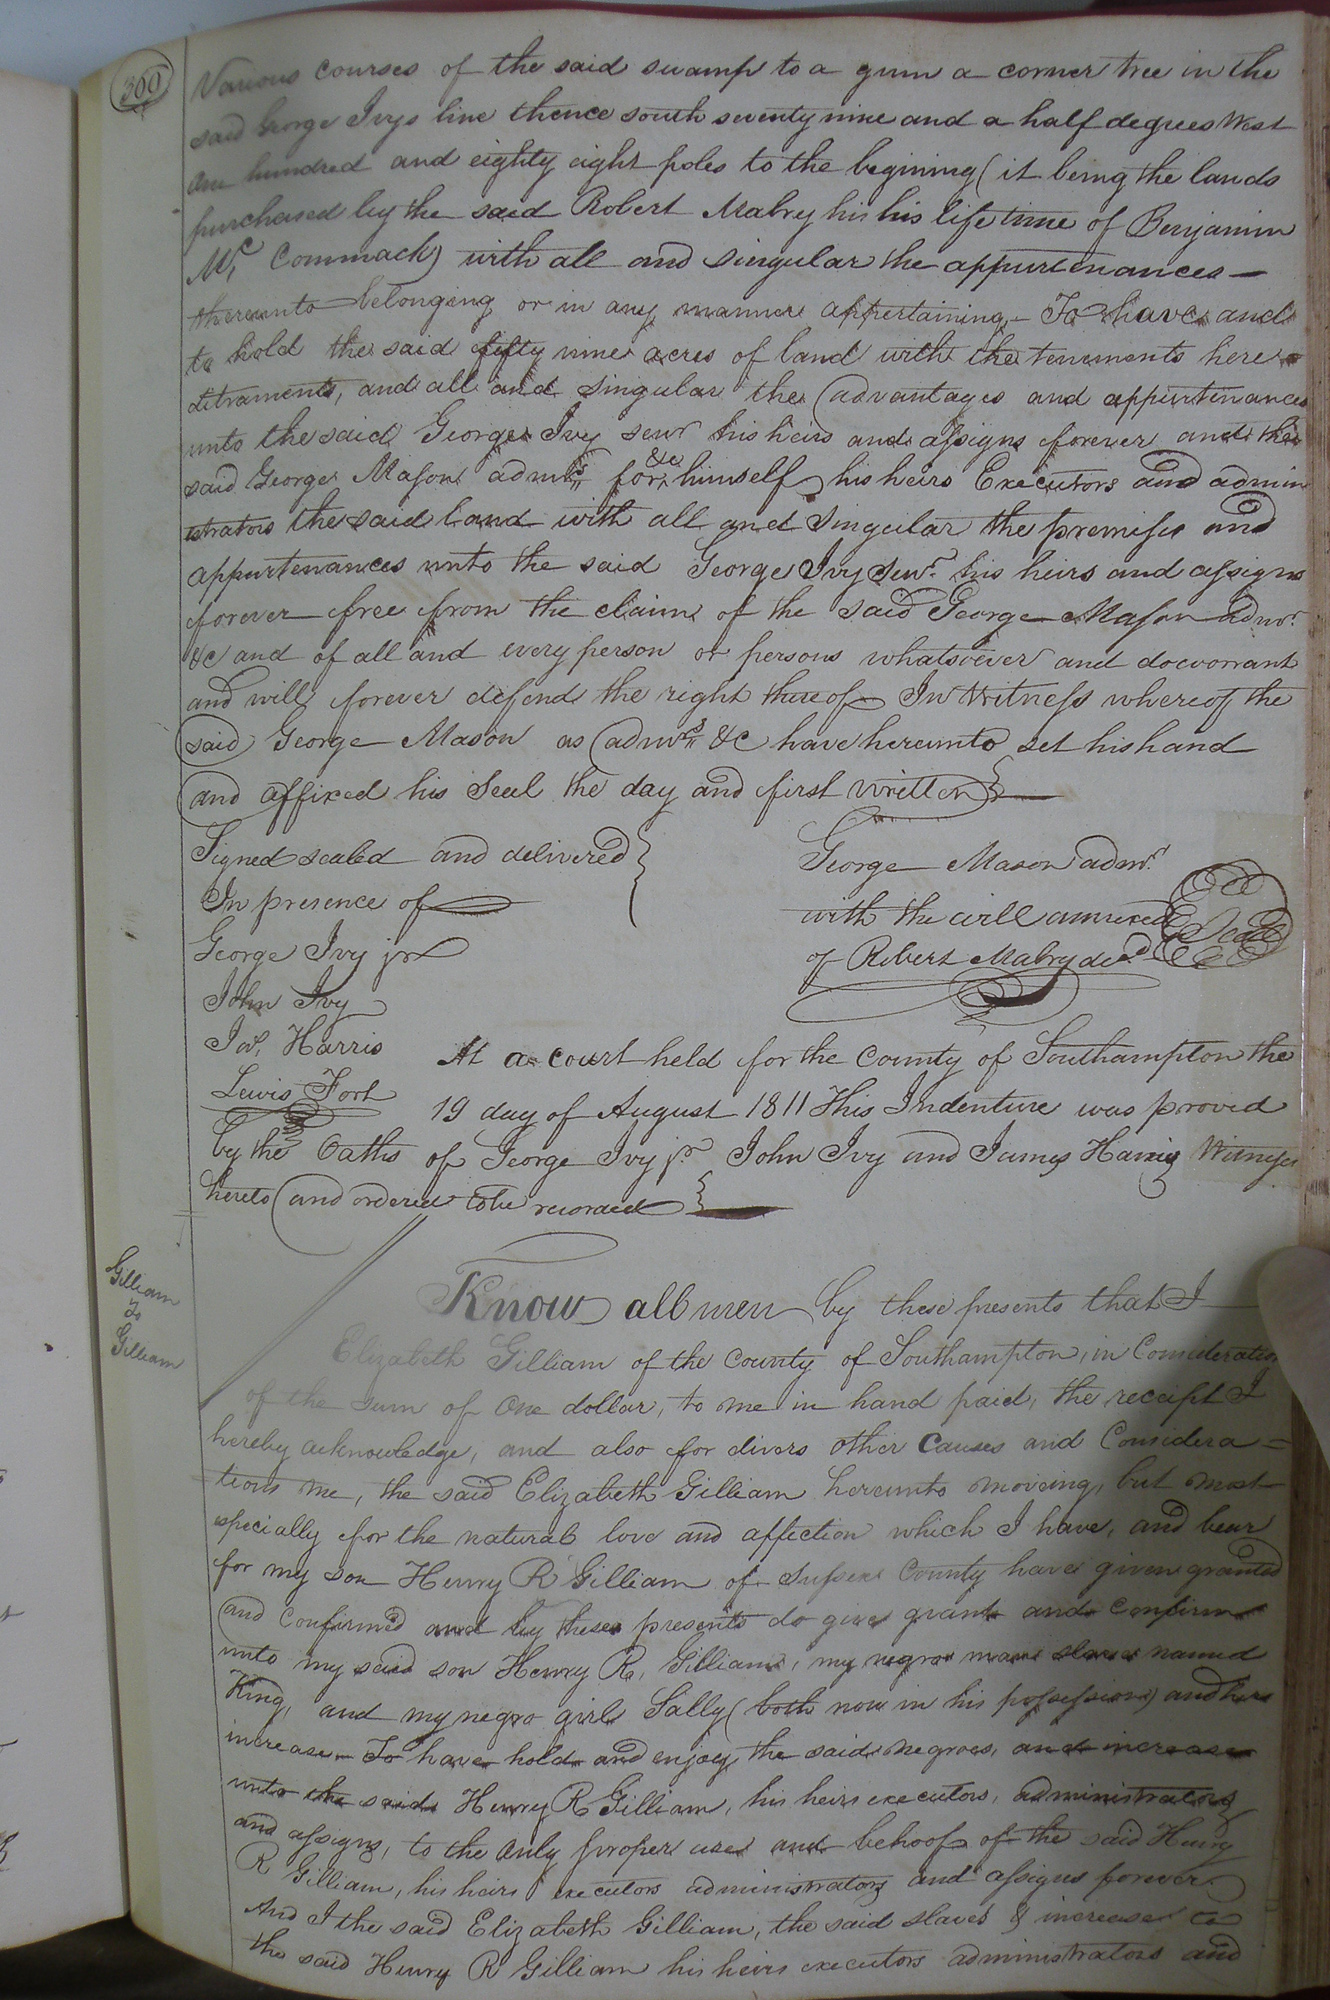 300
Various courses of the said swamp to a gum a corner tree in the
said George Ivys line thence south seventy nine and a half degrees West
one hundred and eighty eight poles to the begining (it being the lands
purchased by the said Robert Mabry his his life time of Benjamin
Mc. Commack) with all and singular the appurtenances
thereunto belonging or in any manner appertaining - To have and
to hold the said fifty nine acres of land with the tenements here
ditraments, and all and singular the advantages and appurtenances
unto the said George Ivy senr his heirs and assigns forever and the
said George Mason admr &c for himself his heirs Executors and admin
istrators the said land with all and singular the premises and
appurtenances unto the said George Ivy Senr. his heirs and assigns
forever free from the claim of the said George Mason admr.
&c and of all and every person or persons whatsoever and do warrant
and will forever defend the right thereof In Witness whereof the
said George Mason as admrs &c have hereunto set his hand
and affixed his Seal the day and first written
Signed sealed and delivered
In presence of
George Ivy jr
John Ivy
Jas. Harris
Lewis Fort
George Mason admr.
with the will annexed
of Robert Mabry decd
Seal
At a court held for the County of Southampton the
19 day of August 1811 This Indenture was proved
by the Oaths of George Ivy jr. John Ivy and James Harris Witnesses
hereto and ordered to be recorded
Gilliam
To
Gilliam
Know all men by these presents that I
Elizabeth Gilliam of the County of Southampton, in Consideration
of the sum of One dollar, to me in hand paid, the receipt I
hereby acknowledge, and also for divers other Causes and Considera=
tions me, the said Elizabeth Gilliam hereunto moveing, but most
especially for the natural love and affection which I have, and bear
for my son Henry R Gilliam of Sussex County have given granted
and confirmed and by these presents do give grant and confirm
unto my said son Henry R, Gilliam, my negro man slave named
King, and my negro girl Sally (both now in his possession) and her
increase To have hold and enjoy the said negroes, and increase
unto the said Henry R Gilliam, his heirs executors, administrators
and assigns, to the only proper use and behoof of the said Henry
R Gilliam, his heirs executors administrators and assigns forever.
And I the said Elizabeth Gilliam, the said slaves & increase to
the said Henry R Gilliam his heirs executors administrators and